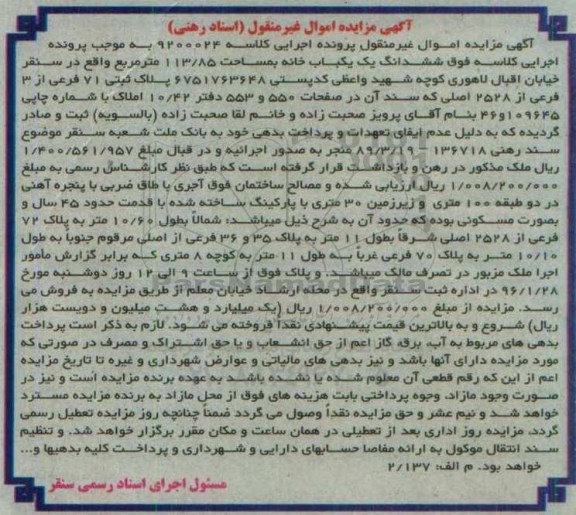 آگهی مزایده اموال غیرمنقول (اسناد رهنی)
آگهی مزایده اموال غیرمنقول پرونده اجرایی کلاسه ۹۲۰۰۰۲۴ به موجب پرونده
اجرایی کلاسه فوق ششدانگ یک یکباب خانه بمساحت ۱۱۳/۸۵ مترمربع واقع در سنقر
خیابان اقبال لاهوری کوچه شهید واعظی کدپستی ۶۷۵۱۷۶۳۶۴۸ پلاک ثبتی ۷۱ فرعی از ۳
فرعی از ۲۵۲۸ اصلی که سند آن در صفحات ۵۵۰ و ۵۵۳ دفتر ۱۰/۴۲ املاک با شماره چاپی
۱۰۹۶۴۵و۴۶ بنام آقای پرویز صحبت زاده و خانم لقا صحبت زاده (بالسویه) ثبت و صادر
گردیده که به دلیل عدم ایفای تعهدات و پرداخت بدهی خود به بانک ملت شعبه سنقر موضوع
سند رهنی ۱۳۶۷۱۸ - ۸۹/۳/۱۹ منجر به صدور اجرائیه و در قبال مبلغ ۱/۴۰۰/۵۶۱/۹۵۷
ریال ملک مذکور در رهن و بازداشت قرار گرفته است که طبق نظر کارشناس رسمی به مبلغ
۱/۰۰۸/۲۰۰/۰۰۰ ریال ارزیابی شده و مصالح ساختمان فوق آجری با طاق ضربی با پنجره آهنی
در دو طبقه ۱۰۰ متری و زیرزمین ۳۰ متری با پارکینگ ساخته شده با قدمت حدود ۴۵ سال و
بصورت مسکونی بوده که حدود آن به شرح ذیل میباشد: شمالاً بطول ۱۰/۶۰ متر به پلاک ۷۲
فرعی از ۲۵۲۸ اصلی شرقاً بطول ۱۱ متر به پلاک ۳۵ و ۳۶ فرعی از اصلی مرقوم جنوباً به طول
۱۰/۱۰ متر به پلاک ۷۰ فرعی غرباً به طول ۱۱ متر به کوچه ۸ متری که برابر گزارش مأمور
اجرا ملک مزبور در تصرف مالک میباشد. و پلاک فوق از ساعت ۹ الی ۱۲ روز دوشنبه مورخ
۹۶/۱/۲۸ در اداره ثبت سنقر واقع در محله ارشاد خیابان معلم از طریق مزایده به فروش می
رسد. مزایده از مبلغ ۱/۰۰۸/۲۰۰/۰۰۰ ریال (یک میلیارد و هشت میلیون و دویست هزار
ریال) شروع و به بالاترین قیمت پیشنهادی نقداً فروخته می شود. لازم به ذکر است پرداخت
بدهی های مربوط به آب، برق، گاز اعم از حق انشعاب و یا حق اشتراک و مصرف در صورتی که
مورد مزایده دارای آنها باشد و نیز بدهی های مالیاتی و عوارض شهرداری و غیره تا تاریخ مزایده
اعم از این که رقم قطعی آن معلوم شده یا نشده باشد به عهده برنده مزایده است و نیز در
صورت وجود مازاد، وجوه پرداختی بابت هزینه های فوق از محل مازاد به برنده مزایده مسترد
خواهد شد و نیم عشر و حق مزایده نقداً وصول می گردد ضمناً چنانچه روز مزایده تعطیل رسمی
گردد، مزایده روز اداری بعد از تعطیلی در همان ساعت و مکان مقرر برگزار خواهد شد. و تنظیم
سند انتقال موکول به ارائه مفاصا حسابهای دارایی و شهرداری و پرداخت کلیه بدهیها و...
خواهد بود. م الف: ۲/۱۳۷
مسئول اجرای اسناد رسمی سنقر